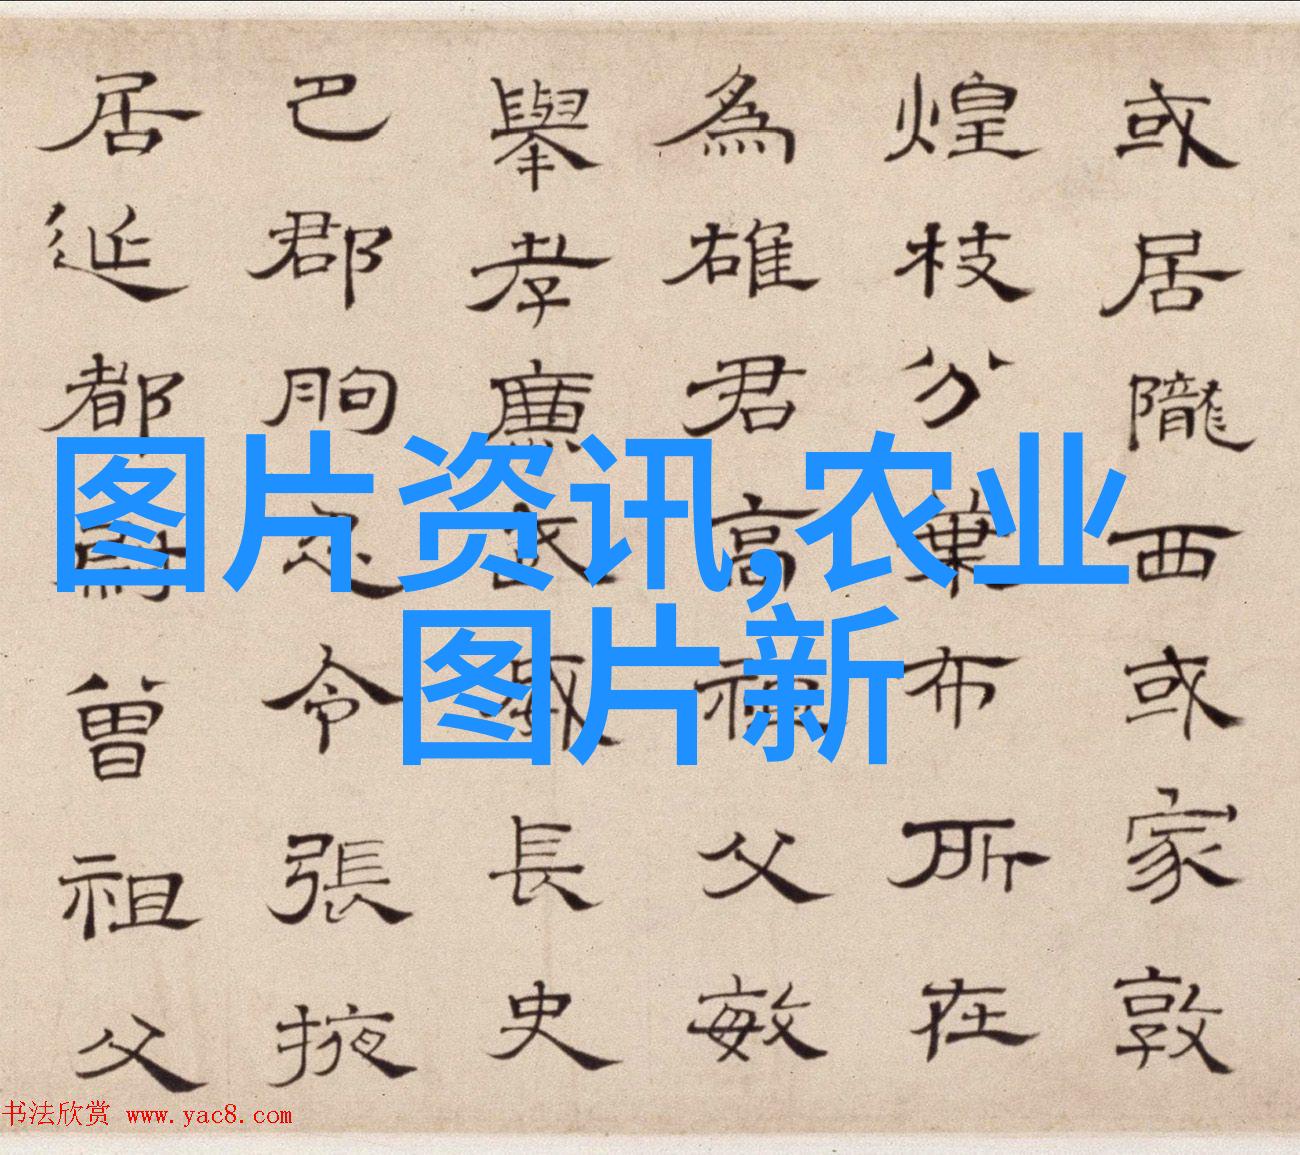 或居隴西或家敦
煌枝分葉布所在
為雄君高祖父敏
舉孝廉武威長史
巴郡朐忍令張掖
居延都尉曾祖父
图片资讯,农业
图片新
书法欣赏 www.yac8.com